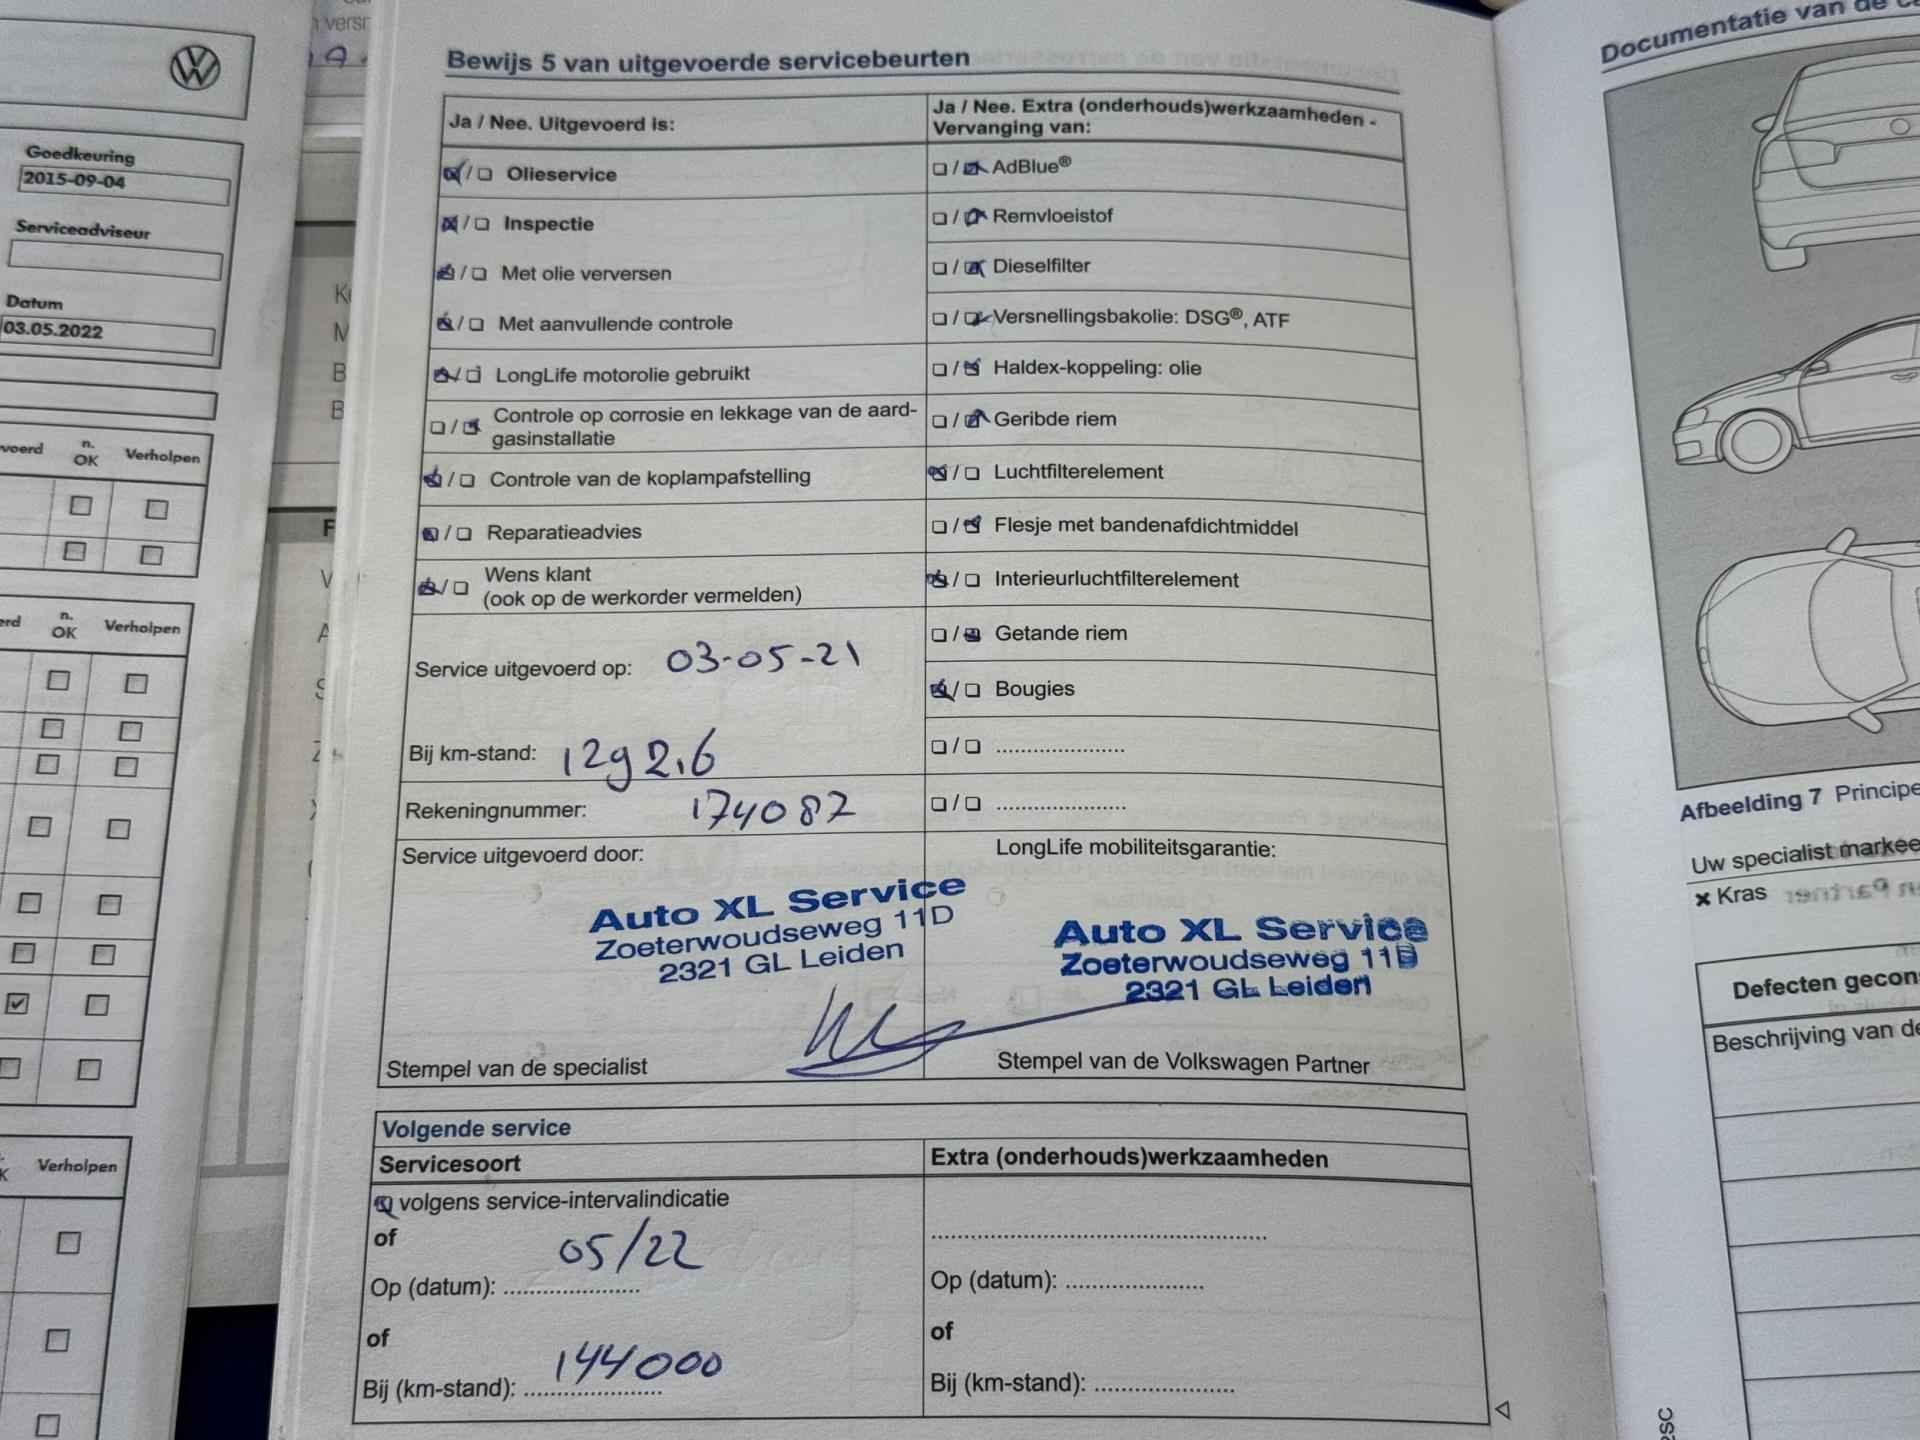 Goedkeuring
2015-09-04
Serviceadviseur
Datum
03.05.2022
n. OK
Verholpen
n. OK
Verholpen
Verholpen
Bewijs 5 van uitgevoerde servicebeurten
Ja / Nee. Uitgevoerd is:
/ Olieservice
/ Inspectie
/ Met olie verversen
/ Met aanvullende controle
/ LongLife motorolie gebruikt
/ Controle op corrosie en lekkage van de aard-
gasinstallatie
/ Controle van de koplampafstelling
/ Reparatieadvies
/ Wens klant
(ook op de werkorder vermelden)
Service uitgevoerd op: 03-05-21
Bij km-stand:
Rekeningnummer: 174087
Ja / Nee. Extra (onderhouds)werkzaamheden -
Vervanging van:
/ AdBlue®
/ Remvloeistof
/ Dieselfilter
/ Versnellingsbakolie: DSG®, ATF
/ Haldex-koppeling: olie
/ Geribde riem
/ Luchtfilterelement
/ Flesje met bandenafdichtmiddel
/ Interieurluchtfilterelement
/ Getande riem
/ Bougies
/ ......................
/ ......................
Service uitgevoerd door:
Auto XL Service
Zoeterwoudseweg 11D
2321 GL Leiden
Stempel van de specialist
LongLife mobiliteitsgarantie:
Auto XL Service
Zoeterwoudseweg 11D
2321 GL Leiden
Stempel van de Volkswagen Partner
Volgende service
Servicesoort
volgens service-intervalindicatie
of
Op (datum): 05/22
of
Bij (km-stand): 144000
Extra (onderhouds)werkzaamheden
Op (datum): ......................
of
Bij (km-stand): ......................
Documentatie van de
Afbeelding 7
Uw specialist
× Kras
Defecten
Beschrijving van